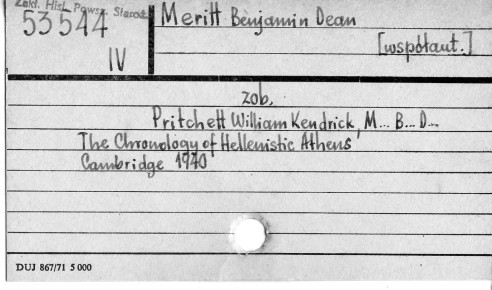 Zakł. Hist. Powsz. Staroż.
53544
IV
Meritt Benjamin Dean
[współaut.]
zob.
Pritchett William Kendrick, M... B... D...
The Chronology of Hellenistic Athens
Cambridge 1940
DUJ 867/71 5 000